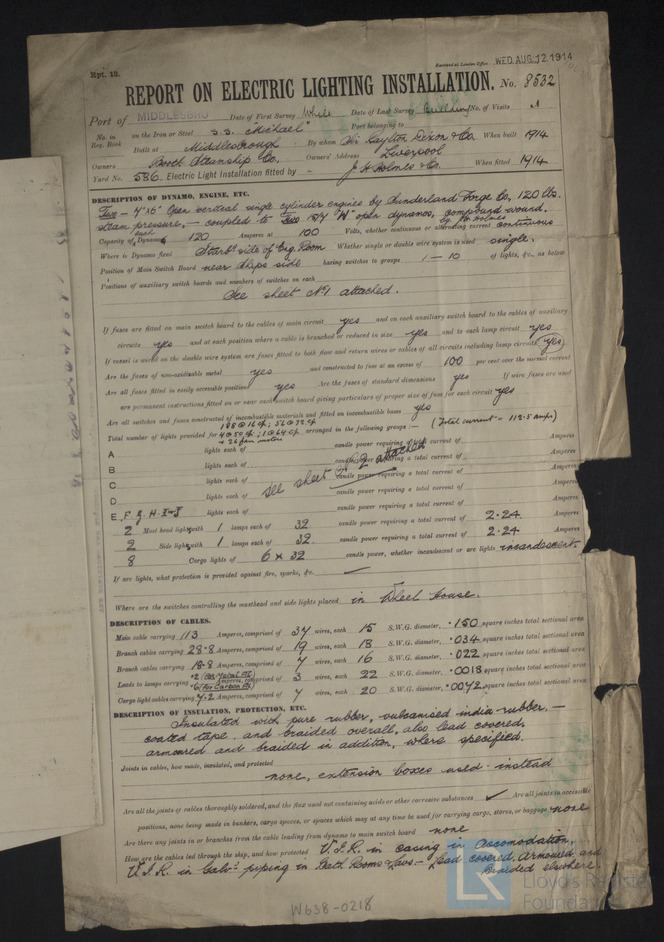 Rpt. 13.
Received at London Office WED. AUG. 12. 1914
REPORT ON ELECTRIC LIGHTING INSTALLATION. No. 8532
Port of MIDDLESBRO Date of First Survey While Date of Last Survey Building No. of Visits
No. in Reg. Book on the Iron or Steel S.S. "Michael" Port belonging to
Built at Middlesbrough By whom Sir Raylton Dixon & Co. When built 1914
Owners Booth Steamship Co. Owners' Address Liverpool
Yard No. 586. Electric Light Installation fitted by J H Holmes & Co. When fitted 1914
DESCRIPTION OF DYNAMO, ENGINE, ETC.
Two – 7"x6" Open vertical single cylinder engines by Sunderland Forge Co, 120 lbs.
steam pressure, – coupled to Two "N" open dynamos, compound wound.
by JH Holmes
Capacity of Dynamo each 120 Amperes at 100 Volts, whether continuous or alternating current continuous
Where is Dynamo fixed Starbd side of Eng. Room Whether single or double wire system is used single.
Position of Main Switch Board near ships side having switches to groups 1 – 10 of lights, &c., as below
Positions of auxiliary switch boards and numbers of switches on each
See sheet No 1 attached.
If fuses are fitted on main switch board to the cables of main circuit yes and on each auxiliary switch board to the cables of auxiliary
circuits yes and at each position where a cable is branched or reduced in size yes and to each lamp circuit yes
If vessel is wired on the double wire system are fuses fitted to both flow and return wires or cables of all circuits including lamp circuits yes
Are the fuses of non-oxidizable metal yes and constructed to fuse at an excess of 100 per cent over the normal current
Are all fuses fitted in easily accessible positions yes Are the fuses of standard dimensions yes If wire fuses are used
are permanent instructions fitted on or near each switch board giving particulars of proper size of fuse for each circuit yes
Are all switches and fuses constructed of incombustible materials and fitted on incombustible bases yes
188 @ 16 cp; 56 @ 32 cp
Total number of lights provided for 4 @ 50 cp; 1 @ 64 cp arranged in the following groups :— (Total current – 112.5 Amps)
+ 26 fan motors
A lights each of candle power requiring a total current of Amperes
B lights each of candle power requiring a total current of Amperes
C lights each of candle power requiring a total current of Amperes
D lights each of candle power requiring a total current of Amperes
See sheet No 2 attached
E, F G. H. I–J lights each of candle power requiring a total current of Amperes
2 Mast head light with 1 lamps each of 32 candle power requiring a total current of 2.24 Amperes
2 Side light with 1 lamps each of 32 candle power requiring a total current of 2.24 Amperes
8 Cargo lights of 6 x 32 candle power, whether incandescent or arc lights incandescent.
If arc lights, what protection is provided against fire, sparks, &c.
Where are the switches controlling the masthead and side lights placed in Wheel House.
DESCRIPTION OF CABLES.
Main cable carrying 113 Amperes, comprised of 37 wires, each 15 S.W.G. diameter, .150 square inches total sectional area
Branch cables carrying 28.8 Amperes, comprised of 19 wires, each 18 S.W.G. diameter, .034 square inches total sectional area
Branch cables carrying 18.8 Amperes, comprised of 7 wires, each 16 S.W.G. diameter, .022 square inches total sectional area
Leads to lamps carrying .2 (for Metal Ft.) .6 (for Carbon Ft.) Amperes, comprised of 3 wires, each 22 S.W.G. diameter, .0018 square inches total sectional area
Cargo light cables carrying 7.2 Amperes, comprised of 7 wires, each 20 S.W.G. diameter, .0072 square inches total sectional area
DESCRIPTION OF INSULATION, PROTECTION, ETC.
Insulated with pure rubber, vulcanised india rubber, –
coated tape, and braided overall, also lead covered,
armoured and braided in addition, where specified.
Joints in cables, how made, insulated, and protected
none, extension boxes used instead
Are all the joints of cables thoroughly soldered, and the flux used not containing acids or other corrosive substances ✓ Are all joints in accessible
positions, none being made in bunkers, cargo spaces, or spaces which may at any time be used for carrying cargo, stores, or baggage none
Are there any joints in or branches from the cable leading from dynamo to main switch board none
How are the cables led through the ship, and how protected V.I.R. in casing in Accomodation,
V.I.R. in Galvd piping in Bath Rooms & Lavs – Lead covered, Armoured and
Braided elsewhere.
W638-0218
LR
Lloyd's Register
Foundation